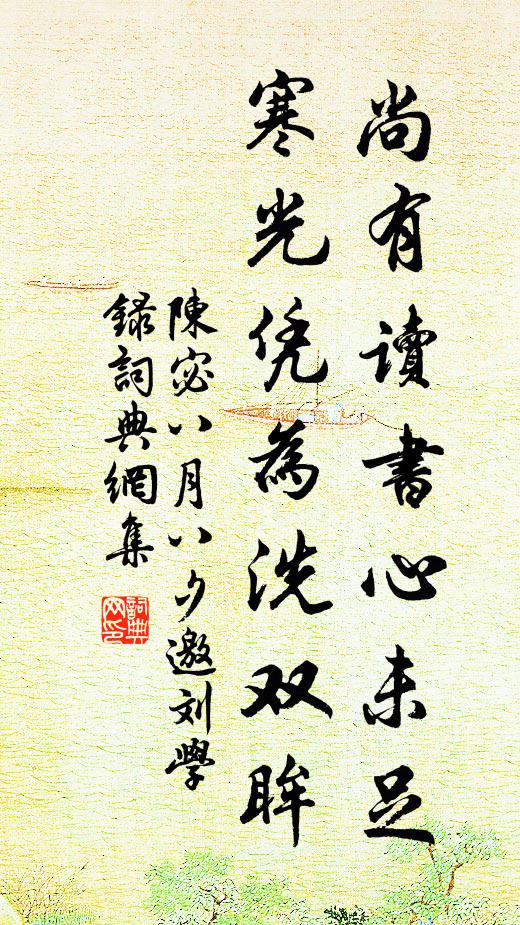 尚有讀書心未足
寒光凭為洗双眸
陳宓八月八夕邀刘學
録詞典網集
詞典网印